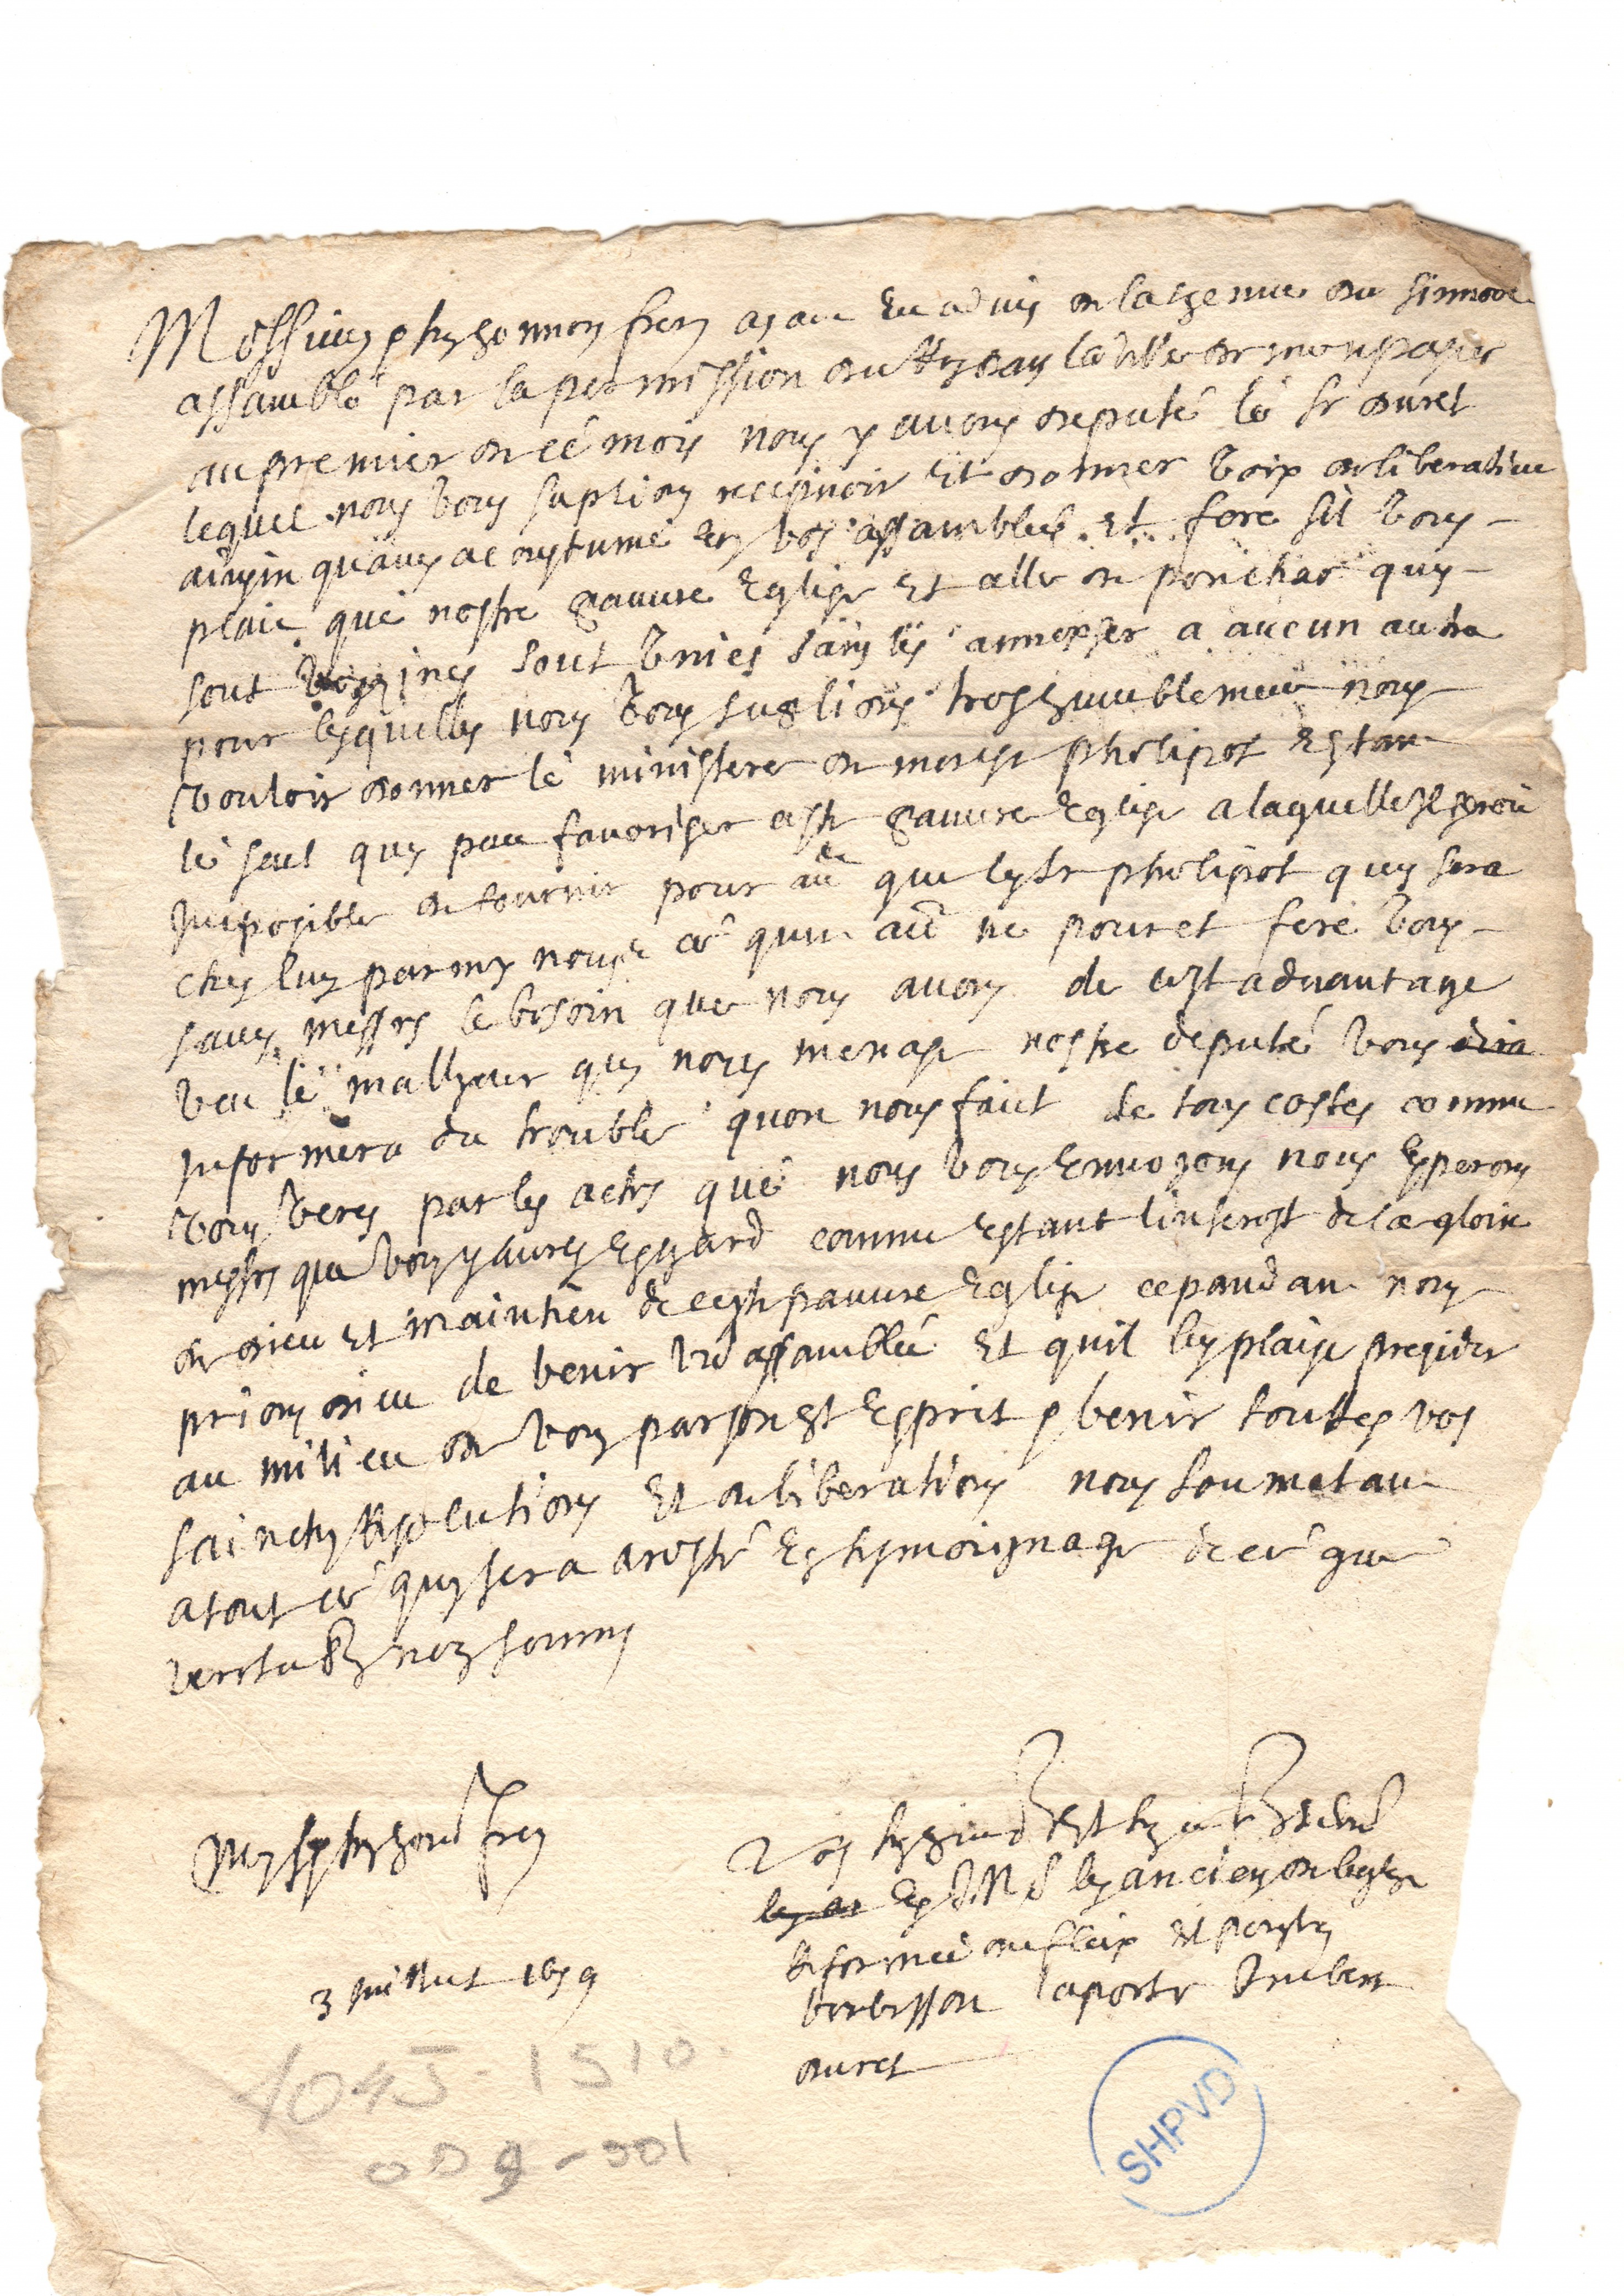 Messieurs et tres honnores freres ayant eu advis de la tenue du sinnode
assamblé par la permission du Roy dans la ville de monpasier
au premier de cé mois nous y avons deputé lé sr duret
lequel nous vous suplions recepvoir et donner voix deliberative
ainsin qu'aves acoustumé en vos assamblees et fere sil vous
plait qué nostre pauvre Eglise et celle de ponchat quy
sont voysines sont unies sans les annexser a aucun autre
pour lesquelles nous vous suplions tres humblement nous
vouloir donner lé ministere de monsr philipot estant
lé seul quy peut favoriser ceste pauvre Eglise a laquelle il seroit
Imposible de fournir pour au que ledt sr philipot quy sera
ches luy parmy nous ce qun au ne pouret fere vous
saves messrs le besoin que nous avons de cest advantage
veu lé malheur quy nous menase nostre deputé vous dira
Informera du trouble quon nous faict de tous costes comme
vous veres par les actes qué nous vous Envoyons nous Esperons
messrs que vous y aures Esgard comme estant linterest de la gloire
de dieu et maintien de ceste pauvre Eglise cepandant nous
prions dieu de benir vre assamblée et quil luy plaise presider
au milieu de vous par son st Esprit et benir touttes vos
sainctes resolutions et deliberations nous soumetant
a tout ce quy sera aresté En tesmoignage de ce que
nous sommes
Messrs et tres honnores freres
Vos tres humbles et tres obeissans
les an En J. C. N. S. les anciens de leglise
Reformee du fleix et pour tous
laporte Imbert
duret
3 Juillet 1659
1045-1510.
009-001
SHPVD